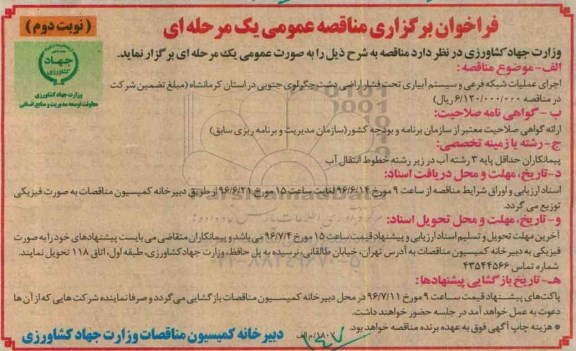 ( نوبت دوم )
فراخوان برگزاری مناقصه عمومی یک مرحله ای
جهاد
کشاورزی
وزارت جهاد کشاورزی
معاونت توسعه مدیریت و منابع انسانی
وزارت جهاد کشاورزی در نظر دارد مناقصه به شرح ذیل را به صورت عمومی یک مرحله ای برگزار نماید.
الف- موضوع مناقصه:
اجرای عملیات شبکه فرعی و سیستم آبیاری تحت فشار اراضی پشت جگرلوی جنوبی در استان کرمانشاه (مبلغ تضمین شرکت
در مناقصه ۶/۱۲۰/۰۰۰/۰۰۰ ریال)
ب- گواهی نامه صلاحیت:
ارائه گواهی صلاحیت معتبر از سازمان برنامه و بودجه کشور (سازمان مدیریت و برنامه ریزی سابق)
ج- رشته یا زمینه تخصصی:
پیمانکاران حداقل پایه ۳ رشته آب در زیر رشته خطوط انتقال آب
د- تاریخ، مهلت و محل دریافت اسناد:
اسناد ارزیابی و اوراق شرایط مناقصه از ساعت ۹ مورخ ۹۶/۶/۱۴ لغایت ساعت ۱۵ مورخ ۹۶/۶/۲۱ از طریق دبیرخانه کمیسیون مناقصات به صورت فیزیکی
توزیع می گردد.
و- تاریخ، مهلت و محل تحویل اسناد:
آخرین مهلت تحویل و تسلیم اسناد ارزیابی و پیشنهاد قیمت ساعت ۱۵ مورخ ۹۶/۷/۴ می باشد و پیمانکاران متقاضی می بایست پیشنهادهای خود را به صورت
فیزیکی به دبیرخانه کمیسیون مناقصات به آدرس تهران، خیابان طالقانی، نرسیده به پل حافظ، وزارت جهاد کشاورزی، طبقه اول، اتاق ۱۱۸ تحویل نمایند.
شماره تماس ۴۳۵۴۴۵۶۶
هـ- تاریخ بازگشایی پیشنهادها:
پاکت‌های پیشنهاد قیمت ساعت ۹ مورخ ۹۶/۷/۱۱ در محل دبیرخانه کمیسیون مناقصات بازگشایی می گردد و صرفا نماینده شرکت هایی که از آن ها
دعوت به عمل خواهد آمد در جلسه حضور خواهند داشت.
* هزینه چاپ آگهی فوق به عهده برنده مناقصه خواهد بود.
دبیرخانه کمیسیون مناقصات وزارت جهاد کشاورزی